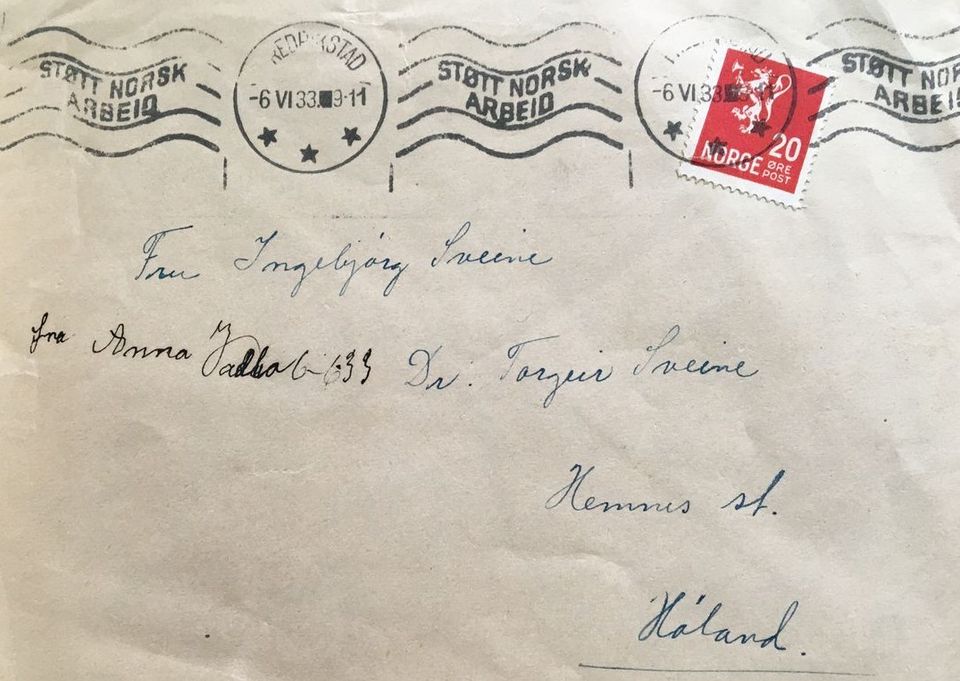 STØTT NORSK
ARBEID
FREDRIKSTAD
-6 VI 33 9-11
STØTT NORSK
ARBEID
-6 VI 33
NORGE 20
ØRE
POST
STØTT NOR
ARBEI
Fru Ingebjörg Sveine
fra Anna 6-633 Dr. Torgeir Sveine
Hemnes st.
Höland.